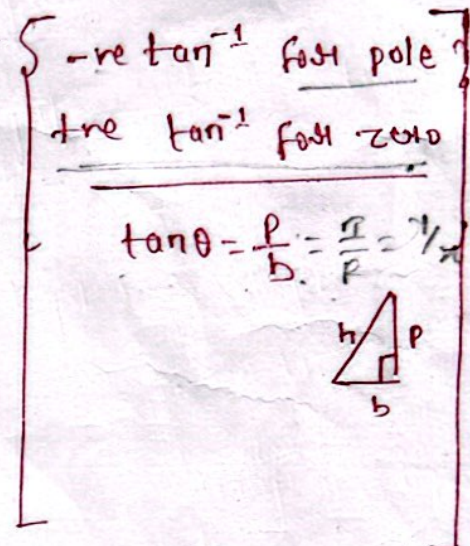 -ve tan⁻¹ for pole
+ve tan⁻¹ for zero
tanθ = P/b = I/R = y/x
h P
b